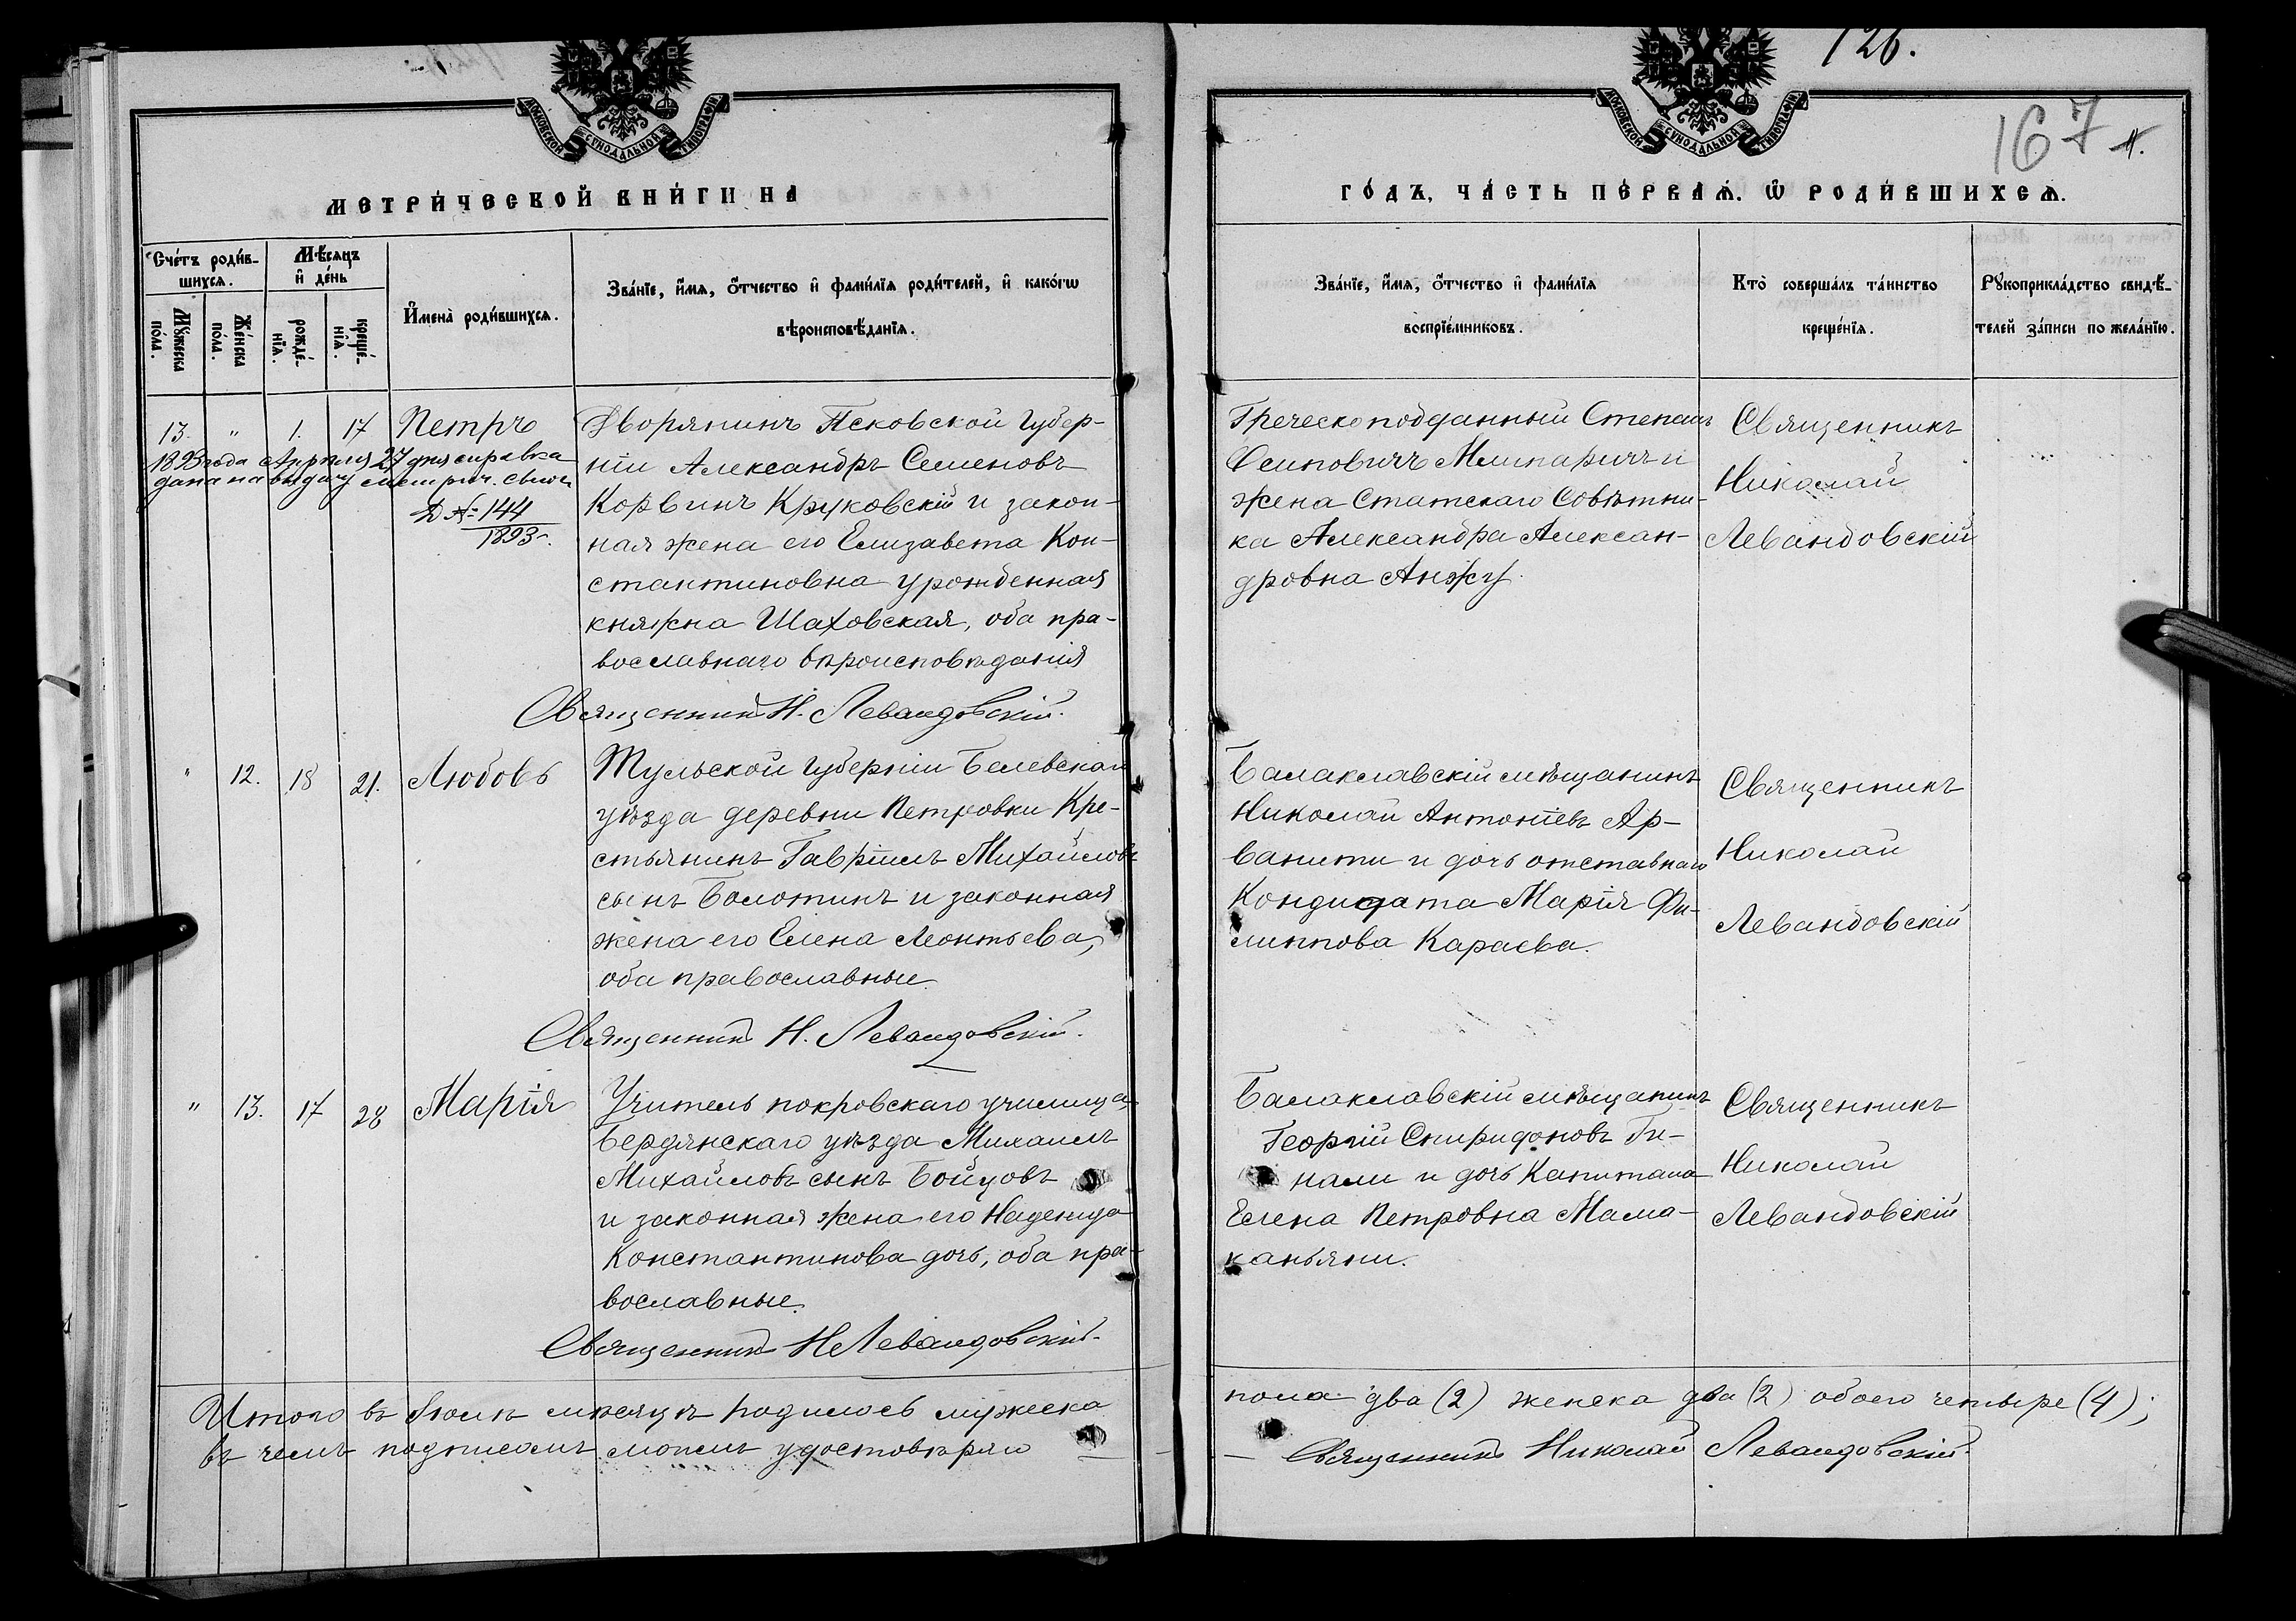 126.
167
МОСКОВСКОЙ СѴНОДАЛЬНОЙ ТИПОГРАФІИ
МОСКОВСКОЙ СѴНОДАЛЬНОЙ ТИПОГРАФІИ
МЕТРИ́ЧЕСКОЙ КНИ́ГИ НА
ГО́ДЪ, ЧА́СТЬ ПЕ́РВАѦ, Ѡ҆ РОДИ́ВШИХСѦ.
Сче́тъ роди́в-
шихсѧ.
Мѣ́сѧцъ
и҆ де́нь
Мꙋ́жеска
по́ла.
Же́нска
по́ла.
рожде́-
нїѧ.
креще́-
нїѧ.
И҆мена̀ роди́вшихсѧ.
Зва́нїе, и҆́мѧ, ѻ҆́тчество и҆ фами́лїѧ роди́телей, и҆ како́гѡ
вѣроисповѣ́данїѧ.
Зва́нїе, и҆́мѧ, ѻ҆́тчество и҆ фами́лїѧ
воспрїе́мниковъ.
Кто̀ соверша́лъ та́инство
креще́нїѧ.
Рꙋкоприкла́дство свидѣ́-
телей за́писи по жела́нїю.
13. " 1. 17 Петръ
1893 года Апрѣля 27 дня справка
дана на выдачу метрич. свид.
Д № 144
1893 г.
Дворянинъ Псковской Губер-
ніи Александръ Семеновъ
Корвинъ Круковскій и закон-
ная жена его Елизавета Кон-
стантиновна урожденная
княжна Шаховская, оба пра-
вославнаго вѣроисповѣданія
Священникъ Н. Левандовскій.
Греческоподданный Степанъ
Осиповичъ и
жена Статскаго Совѣтни-
ка Александра Алексан-
дровна Анжу.
Священникъ
Николай
Левандовскій
" 12. 18 21. Любовь
Тульской Губерніи Белевскаго
уѣзда деревни Петровки Кре-
стьянинъ Гавріилъ Михайловъ
сынъ Болотинъ и законная
жена его Елена Леонтьева,
оба православные
Священникъ Н. Левандовскій.
Балаклавскій мѣщанинъ
Николай Антоніевъ Ар-
ванити и дочь отставнаго
Кондидата Марія Фи-
липпова Караева.
Священникъ
Николай
Левандовскій
" 13. 17 28 Марія
Учитель покровскаго училища
Бердянскаго уѣзда Михаилъ
Михайловъ сынъ Бойцовъ
и законная жена его Надежда
Константинова дочь, оба пра-
вославные.
Священникъ Н Левандовскій.
Балаклавскій мѣщанинъ
Георгій Спиридоновъ Ги-
нали и дочь Капитана
Елена Петровна Мама-
каньяни.
Священникъ
Николай
Левандовскій
Итого въ Іюлѣ мѣсяцѣ родилось мужеска
пола два (2) женска два (2) обоего четыре (4);
въ чемъ подписомъ моимъ удостовѣряю —
— Священникъ Николай Левандовскій.